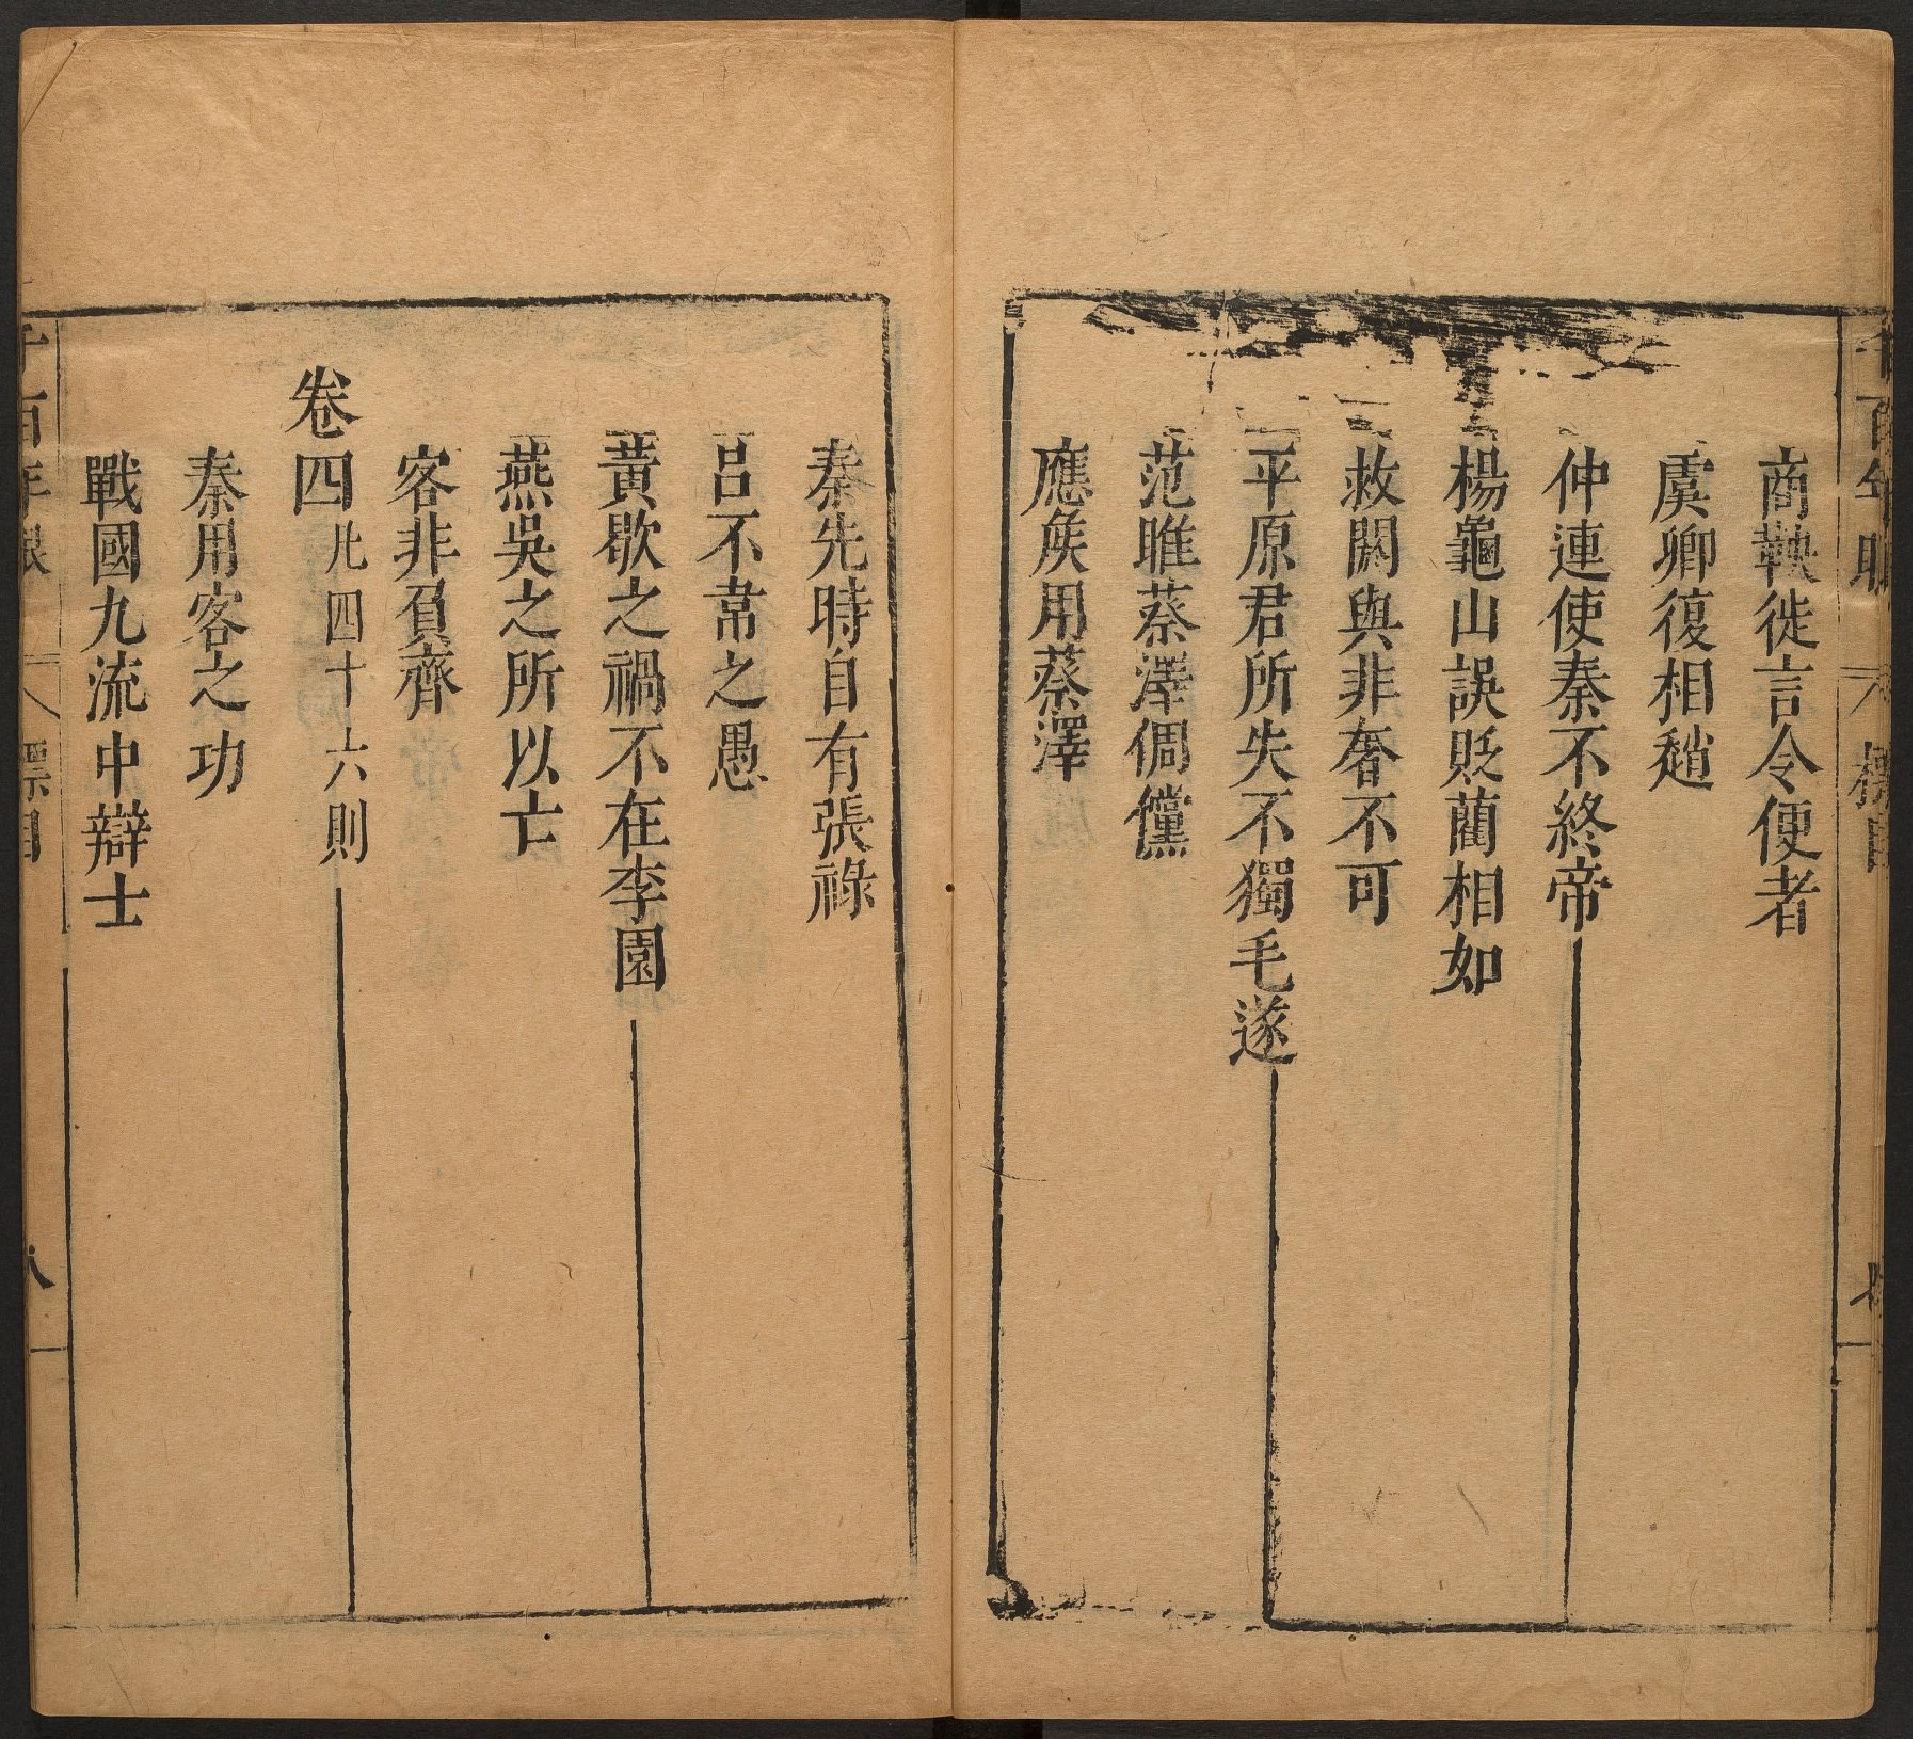 商鞅徙言令便者
虞卿復相趙
仲連使秦不終帝
楊龜山誤貶藺相如
救閼與非奢不可
平原君所失不獨毛遂
范睢蔡澤倜儻
應矦用蔡澤
秦先時自有張祿
呂不韋之愚
黃歇之禍不在李園
燕吳之所以亡
客非負齊
卷四凡四十六則
秦用客之功
戰國九流中辯士
千百年眼
標目
八